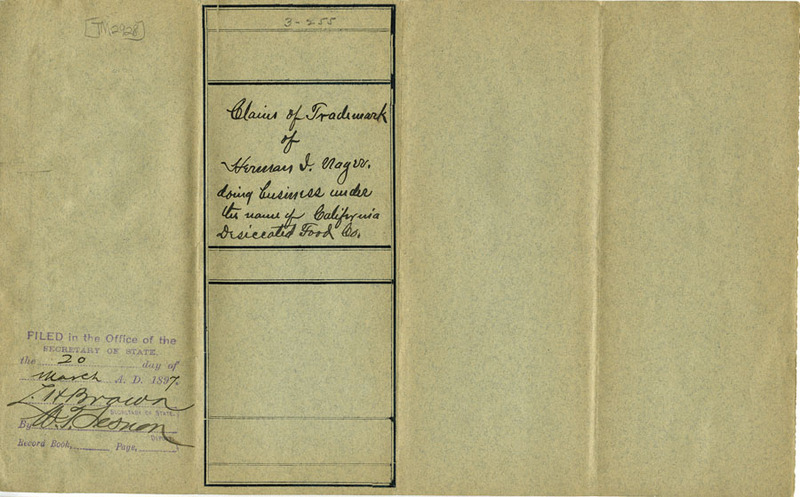 [TM2928]
3-255
Claim of Trademark
of
Herman I.
doing business under
the name of California
Desiccated Food Co.
FILED in the Office of the
SECRETARY OF STATE
the 20 day of
March A. D. 1897.
L. H. Brown
SECRETARY OF STATE
By
DEPUTY
Record Book, Page,